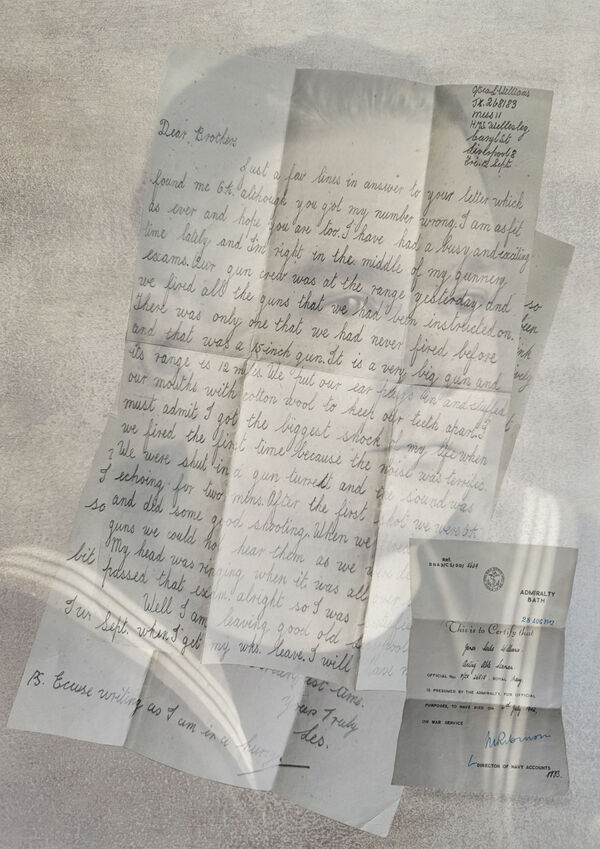 JX.268183
Mess 11
HMS Wellesley
Caryl St
Liverpool 8
Dear Brothers
Just a few lines in answer to your letter which
found me O.K. although you got my number wrong. I am as fit
as ever and hope you are too. I have had a busy and exciting
time lately and I'm right in the middle of my gunnery
exams. Our gun crew was at the range yesterday and so
we fired all the guns that we had been instructed on.
There was only one that we had never fired before
and that was a 15 inch gun. It is a very big gun and
its range is 12 miles. We put our ear plugs in and stuffed
our mouths with cotton wool to keep our teeth apart. I
must admit I got the biggest shock of my life when
we fired the first time because the noise was terrific
We were shut in a gun turrett and the sound was
echoing for two mins. After the first shot we were O.K.
so and did some good shooting. When we
guns we could not hear them as we were
My head was ringing when it was all over
bit passed that exam alright so I was
Well I am leaving good old
I Sept. when I get my leave. I will
Yours Truly
Les.
P.S. Excuse writing as I am in a hurry
ADMIRALTY
BATH
28 AUG 1942
This is to Certify that
OFFICIAL No. ROYAL Navy
IS PRESUMED BY THE ADMIRALTY, FOR OFFICIAL
PURPOSES, TO HAVE DIED ON July 1942,
ON WAR SERVICE
DIRECTOR OF NAVY ACCOUNTS